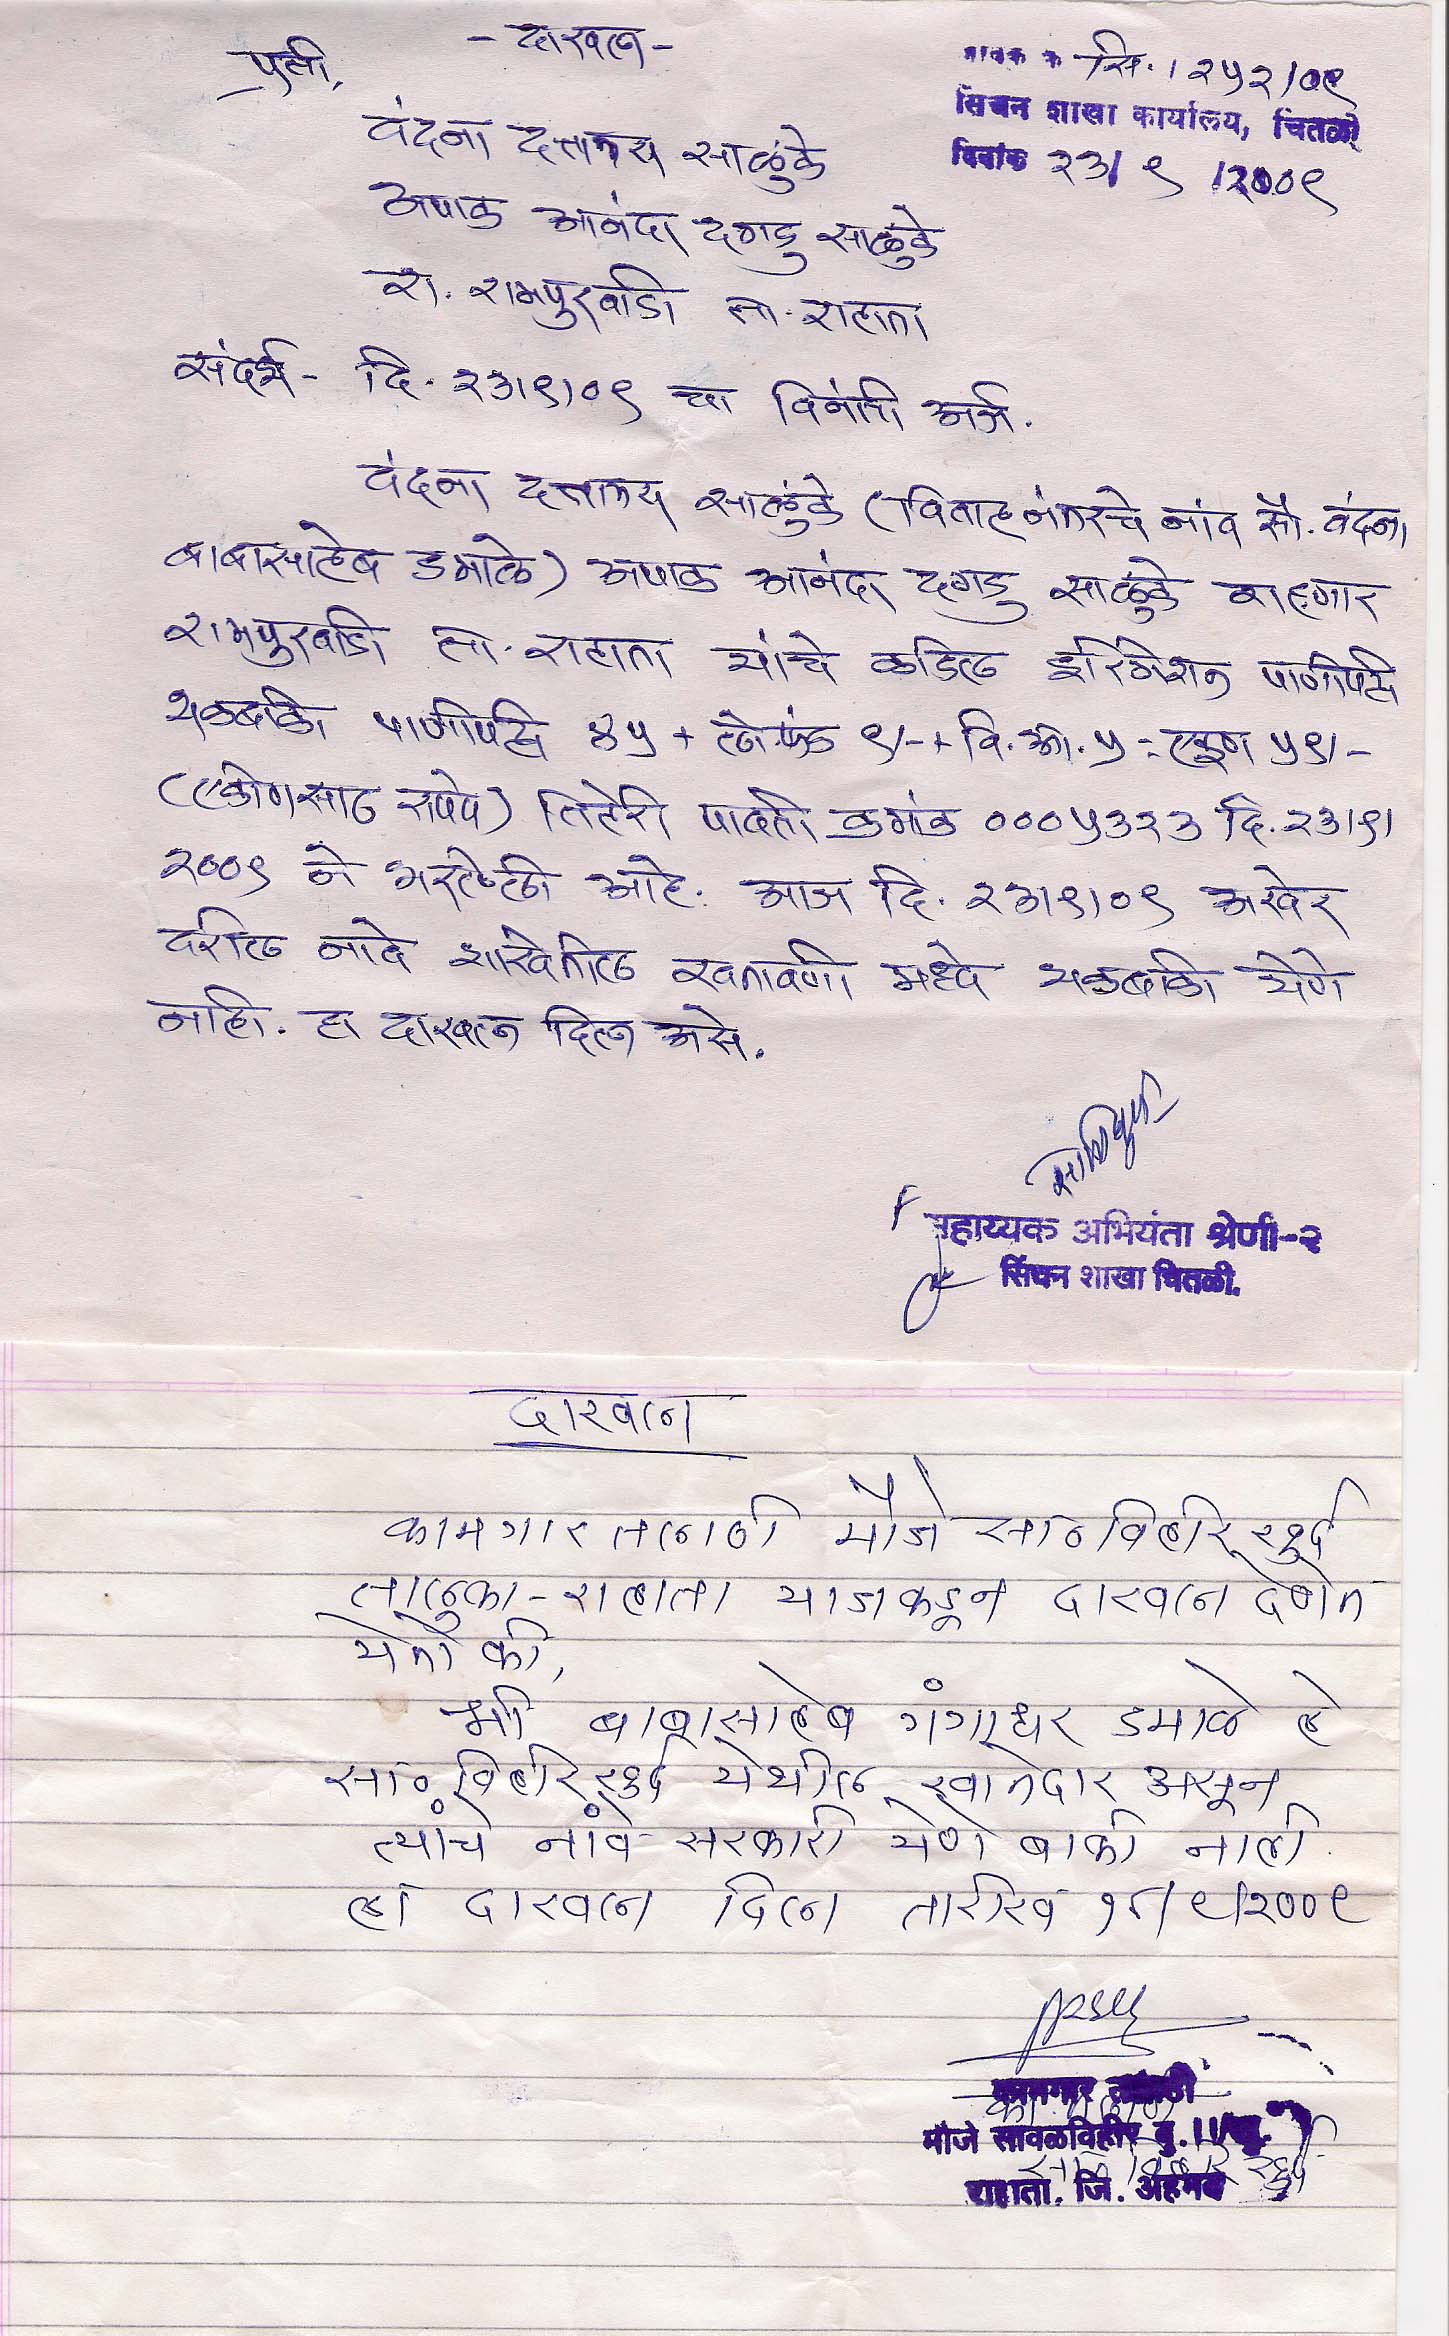 - दाखला -
प्रती,
जावक क्र सि. । २५२/०९
सिंचन शाखा कार्यालय, चितळी
दिनांक २३/९/२००९
वंदना दत्तात्रय साळुंके
अपाक आनंदा दगडु साळुंके
रा. रामपुरवाडी ता. राहाता
संदर्भ - दि. २३/९/०९ चा विनंती अर्ज.
वंदना दत्तात्रय साळुंके (विवाहनंतरचे नांव सौ. वंदना
बाबासाहेब डमाळे) अपाक आनंदा दगडु साळुंके राहणार
रामपुरवाडी ता. राहाता यांचे कडिल इरिगेशन पाणीपट्टी
थकबाकी पाणीपट्टी ४५ + लो.फंड ९/- + वि.आ. ५ = एकुण ५९/-
(एकोणसाठ रुपये) तिहेरी पावती क्रमांक ०००५३२३ दि. २३/९/
२००९ ने भरलेली आहे. आज दि. २३/९/०९ अखेर
वरील नावे शाखेतील खतावणी मध्ये थकबाकी येणे
नाही. हा दाखला दिला असे.
सहाय्यक अभियंता श्रेणी-२
सिंचन शाखा चितळी.
दाखला
कामगार तलाठी मौजे सा०विहीर खुर्द
तालुका - राहाता याजकडून दाखला देणेत
येतो की,
श्री बाबासाहेब गंगाधर डमाळे हे
सा०विहीर खुर्द येथील खातेदार असून
त्यांचे नांवे सरकारी येणे बाकी नाही
हा दाखला दिला तारीख १८/९/२००९
कामगार तलाठी
मौजे सावळविहीर बु.।।खु.
राहाता. जि. अहमद